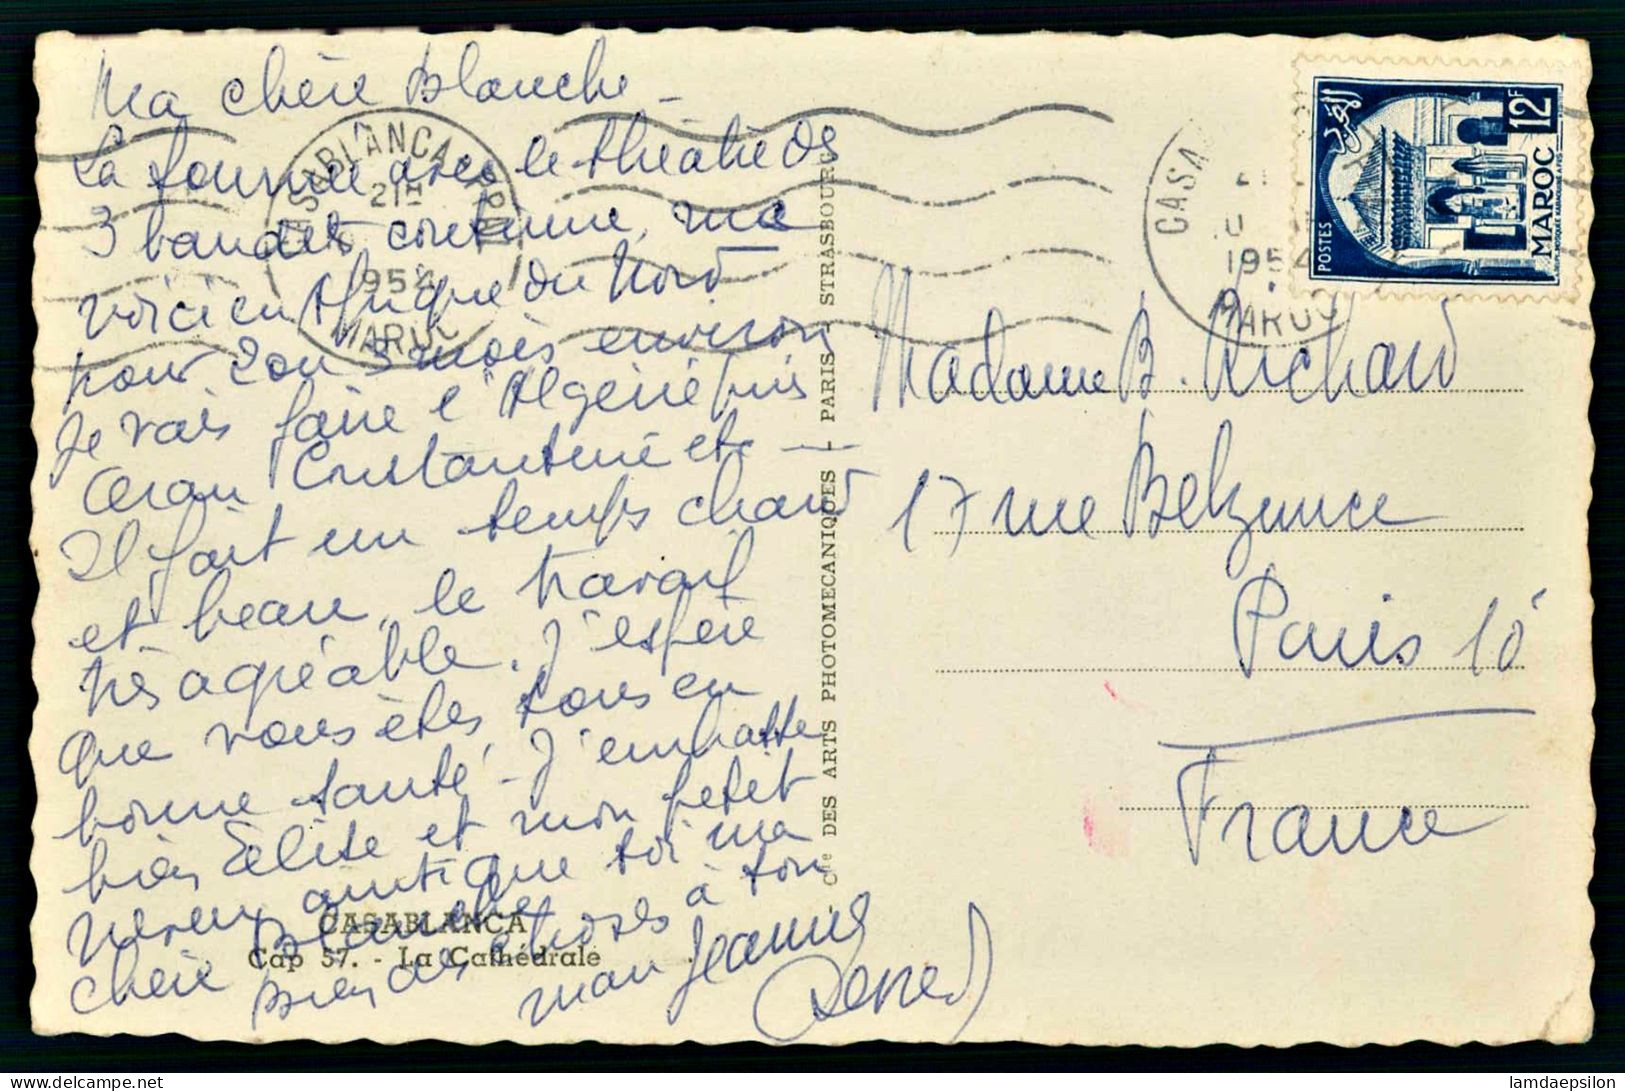 Ma chère Blanche -
La tournée avec le théâtre de
3 baudets continue, me
voici en Afrique du Nord
pour 2 ou 3 mois environ
Je vais faire l'Algérie puis
Oran Constantine etc -
Il fait un temps chaud
et beau, le travail
très agréable. J'espère
que vous êtes tous en
bonne santé - J'embrasse
bien Élise et mon petit
neveu ainsi que toi ma
chère Blanche
Bien des choses à ton
mari Jeanne
CASABLANCA
Cap 57. - La Cathédrale
Cie DES ARTS PHOTOMECANIQUES - PARIS - STRASBOURG
CASABLANCA
21H
1954
MAROC
CASA
1954
MAROC
POSTES
MAROC
12F
Madame B. Richard
17 rue Belzunce
Paris 10
France
lamdaepsilon
delcampe.net